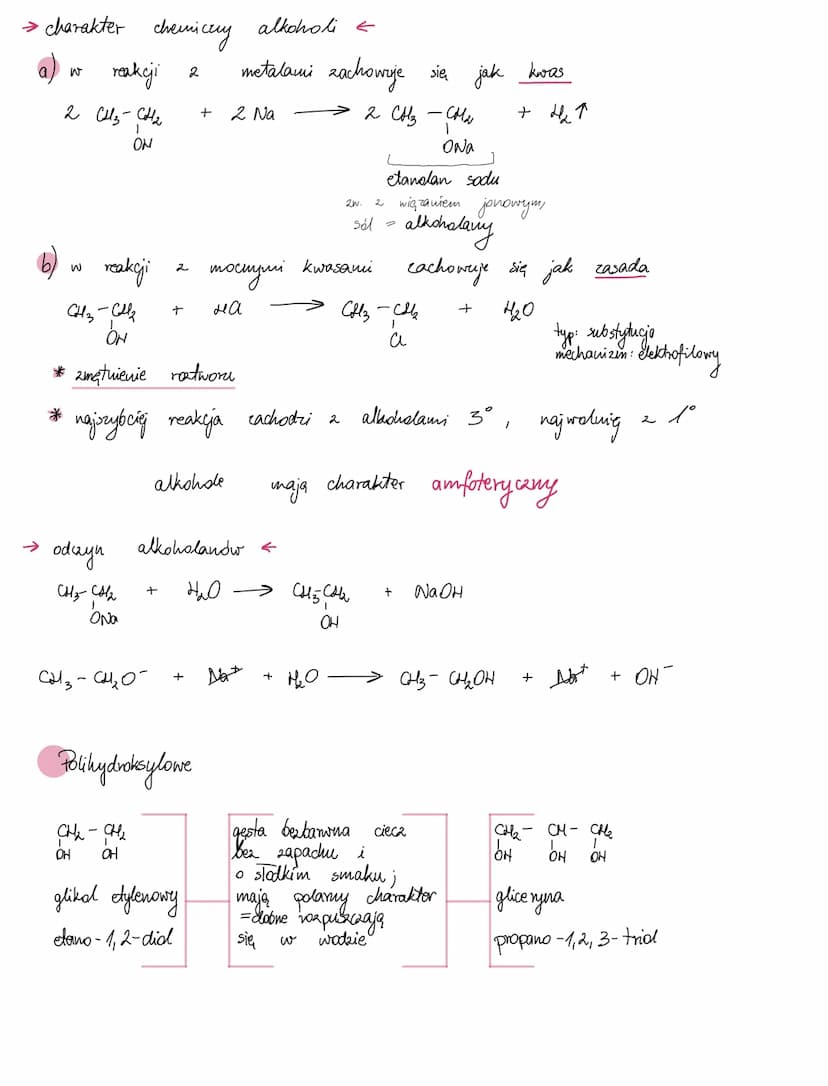 → charakter chemiczny alkoholi ←
a) w reakcji z metalami zachowuje się jak kwas
2 CH3 – CH2 + 2 Na ⟶ 2 CH3 – CH2 + H2↑
OH ONa
etanolan sodu
zw. z wiązaniem jonowym,
sól = alkoholany
b) w reakcji z mocnymi kwasami zachowuje się jak zasada
CH3 – CH2 + HCl ⟶ CH3 – CH2 + H2O
OH Cl
typ: substytucja
mechanizm: elektrofilowy
* zmętnienie roztworu
* najszybciej reakcja zachodzi z alkoholami 3°, najwolniej z 1°
alkohole mają charakter amfoteryczny
→ odczyn alkoholanów ←
CH3 – CH2 + H2O ⟶ CH3 – CH2 + NaOH
ONa OH
CH3 – CH2O⁻ + Na⁺ + H2O ⟶ CH3 – CH2OH + Na⁺ + OH⁻
Polihydroksylowe
CH2 – CH2
OH OH
glikol etylenowy
etano-1,2-diol
gęsta bezbarwna ciecz
bez zapachu i
o słodkim smaku;
mają polarny charakter
= dobrze rozpuszczają
się w wodzie
CH2 – CH – CH2
OH OH OH
gliceryna
propano-1,2,3-triol